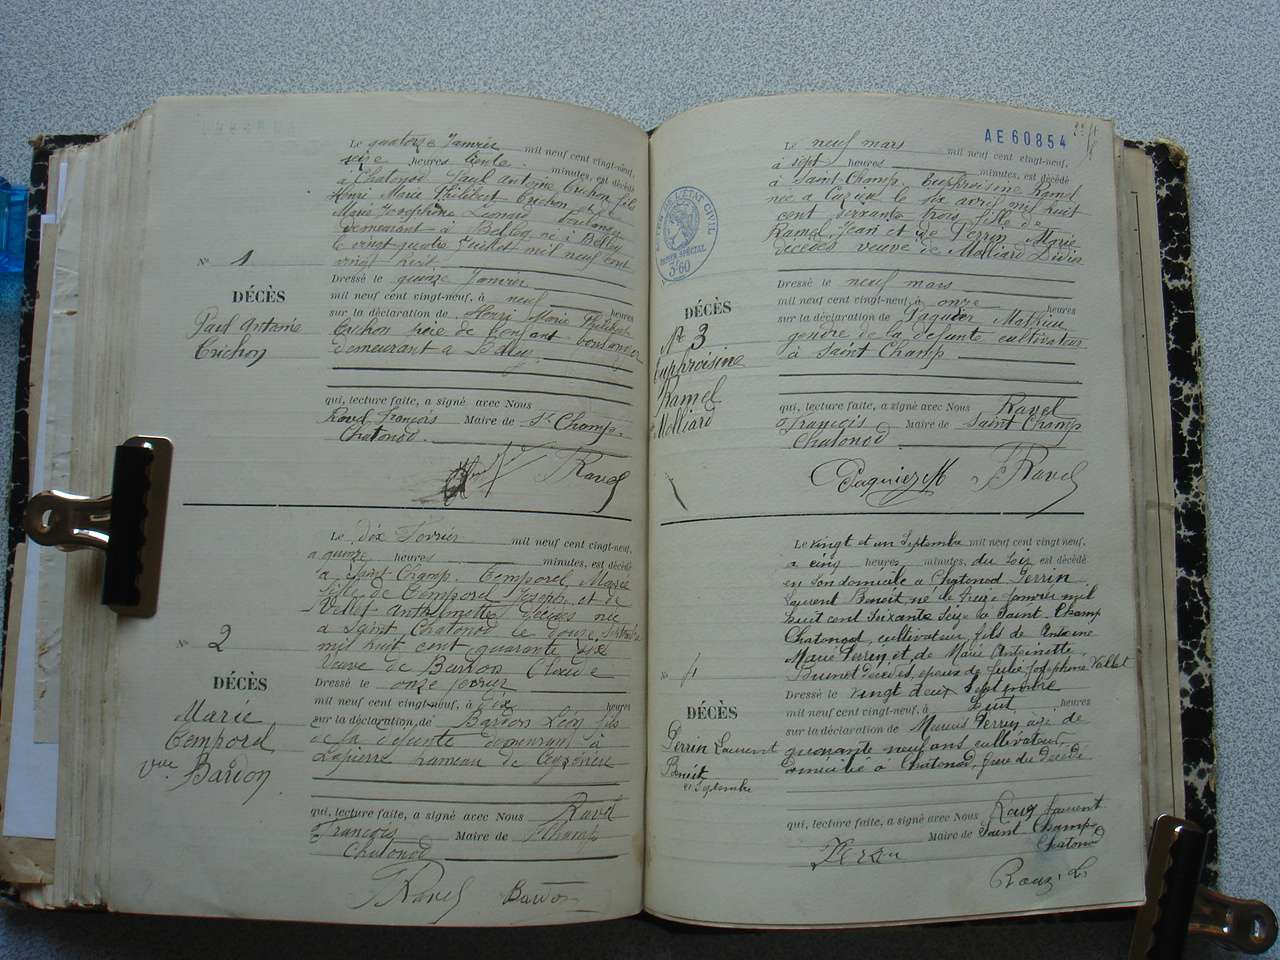 N° 1
DÉCÈS
Paul Antoine
Crichon
Le quatorze Janvier mil neuf cent vingt-neuf,
seize heures trente minutes, est décédé
à Chatonod Paul Antoine Crichon fils
Henri Marie Philibert Crichon et de
Marie Joséphine Léonard
demeurant à Belley né à Belley
le vingt quatre Juillet mil neuf cent
vingt huit
Dressé le quinze Janvier
mil neuf cent vingt-neuf, à neuf heures
sur la déclaration de Henri Marie Philibert
Crichon père de l'enfant boulanger
demeurant à Belley
qui, lecture faite, a signé avec Nous
Ravel François Maire de St Champ-
Chatonod.
F Ravel
N° 2
DÉCÈS
Marie
Temporel
vve Bardon
Le dix Février mil neuf cent vingt-neuf,
à quinze heures minutes, est décédé
à Saint Champ. Temporel Marie
fille de Temporel Joseph et de
Vellet Anthelmette décédés née
à Saint Chatonod le douze
mil huit cent quarante
Veuve de Bardon Claude
Dressé le onze février
mil neuf cent vingt-neuf, à dix heures
sur la déclaration de Bardon Léon fils
de la défunte demeurant à
Lapierre hameau de Ceyzérieu
qui, lecture faite, a signé avec Nous Ravel
François Maire de St Champ
Chatonod
F Ravel Bardon
AE 60854
L'ÉTAT CIVIL
PAPIER SPÉCIAL
3F60
DÉCÈS
N° 3
Euphroisine
Ramel
Molliard
Le neuf mars mil neuf cent vingt-neuf,
à sept heures minutes, est décédé
à Saint Champ Euphroisine Ramel
née à Cuzieu le six avril mil huit
cent soixante trois fille de
Ramel Jean et de Perrin Marie
décédés veuve de Molliard
Dressé le neuf mars
mil neuf cent vingt-neuf, à onze heures
sur la déclaration de Paquier Mathieu
gendre de la défunte cultivateur
à Saint Champ
qui, lecture faite, a signé avec Nous Ravel
François Maire de Saint Champ
Chatonod
Paquier M F Ravel
N° 4
DÉCÈS
Perrin Laurent
Benoît
21 Septembre
Le vingt et un Septembre mil neuf cent vingt-neuf,
à cinq heures minutes, du soir est décédé
en son domicile à Chatonod Perrin
Laurent Benoît, né le treize Janvier mil
huit cent soixante seize à Saint-Champ
Chatonod, cultivateur, fils de Antoine
Marie Perrin et de Marie Antoinette
Brunet décédés, époux de Julie Joséphine Vallet
Dressé le vingt deux Septembre
mil neuf cent vingt-neuf, à huit heures
sur la déclaration de Marius Perrin âgé de
quarante neuf ans cultivateur
domicilié à Chatonod, frère du décédé
qui, lecture faite, a signé avec Nous Roux Laurent
Maire de Saint Champ
Chatonod
Perrin
Roux L